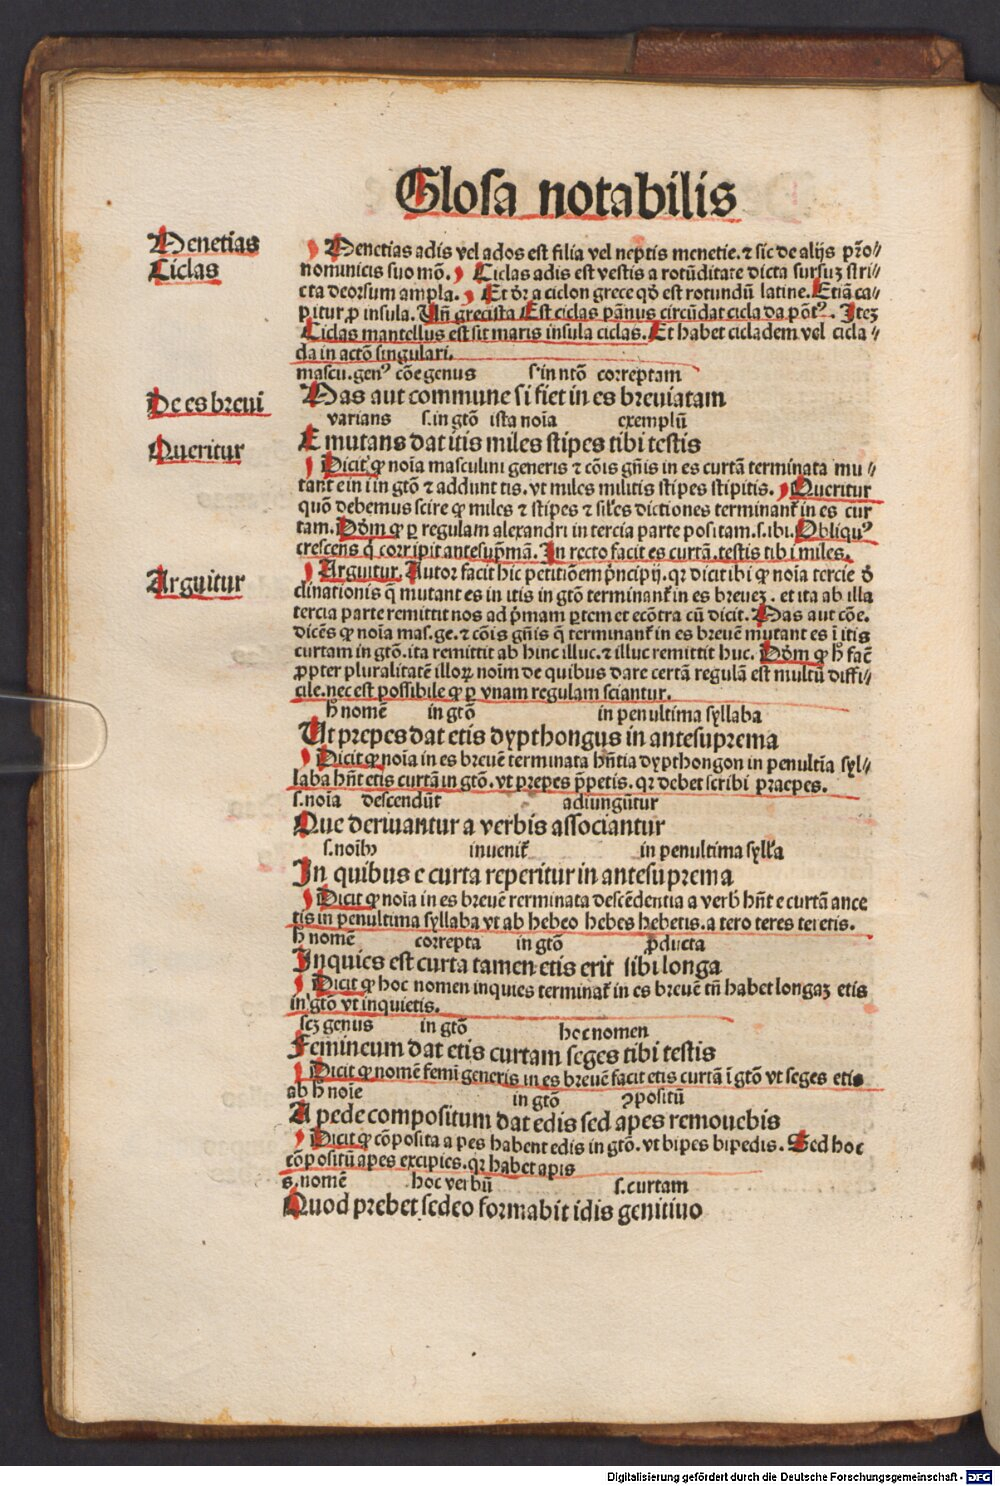 Glosa notabilis
Menetias
Ciclas
Menetias adis vel ados est filia vel neptis menetie. ⁊ sic de alijs pr̄o⸗
nominicis suo mō. Ciclas adis est vestis a rotūditate dicta sursuꝫ stri⸗
cta deorsum ampla. Et dr̄ a ciclon grece qd̄ est rotundū latine. Etiā ca⸗
pitur ꝓ insula. Vn̄ grecista Est ciclas pānus circūdat cicla da pōtꝰ. Iteꝫ
Ciclas mantellus est sit maris insula ciclas. Et habet cicladem vel cicla⸗
da in actō singulari.
mascu. genꝰ cōe genus s. in ntō correptam
De es breui
Mas aut commune si fiet in es breuiatam
varians s. in gtō ista noīa exemplū
Queritur
E mutans dat itis miles stipes tibi testis
Dicit̄ ꝙ noīa masculini generis ⁊ cōis gn̄is in es curtā terminata mu⸗
tant e in i in gtō ⁊ addunt tis. vt miles militis stipes stipitis. Queritur
quō debemus scire ꝙ miles ⁊ stipes ⁊ sil̄es dictiones terminant̄ in es cur
tam. Dd̄m ꝙ ꝑ regulam alexandri in tercia parte positam. s. ibi. Obliquꝰ
crescens q̄ corripit antesup̄mā. In recto facit es curtā. testis tibi miles.
Arguitur
Arguitur. Autor facit hic petitiōem p̄ncipij. qꝛ dicit ibi ꝙ noīa tercie d̄
clinationis q̄ mutant es in itis in gtō terminant̄ in es breueꝫ. et ita ab illa
tercia parte remittit nos ad p̄mam ꝑtem et ecōtra cū dicit. Mas aut cōe.
dicēs ꝙ noīa mas. ge. ⁊ cōis gn̄is q̄ terminant̄ in es breuē mutant es ī itis
curtam in gtō. ita remittit ab hinc illuc. ⁊ illuc remittit huc. Dd̄m ꝙ h̄ fac̄
ꝓpter pluralitatē illoꝝ noīm de quibus dare certā regulā est multū diffi⸗
cile. nec est possibile ꝙ ꝑ vnam regulam sciantur.
h̄ nomē in gtō in penultima syllaba
Vt prepes dat etis dypthongus in antesuprema
Dicit ꝙ noīa in es breuē terminata hn̄tia dypthongon in penultīa syl⸗
laba hn̄t etis curtā in gtō. vt prepes p̄petis. qꝛ debet scribi praepes.
s. noīa descendūt adiungūtur
Que deriuantur a verbis associantur
s. noīb⁹ inuenit̄ in penultima sylla
In quibus e curta reperitur in antesuprema
Dicit ꝙ noīa in es breuē rerminata descēdentia a verb̄ hn̄t e curtā ance
tis in penultima syllaba vt ab hebeo hebes hebetis. a tero teres teretis.
h̄ nomē correpta in gtō ꝓducta
Inquies est curta tamen etis erit sibi longa
Dicit ꝙ hoc nomen inquies terminat̄ in es breuē tn̄ habet longaꝫ etis
in gtō vt inquietis.
scꝫ genus in gtō hoc nomen
Femineum dat etis curtam seges tibi testis
Dicit ꝙ nomē femī generis in es breuē facit etis curtā ī gtō vt seges etis
ab h̄ noīe in gtō ꝯpositū
A pede compositum dat edis sed apes remouebis
Dicit ꝙ cōposita a pes habent edis in gtō. vt bipes bipedis. Sed hoc
cōpositū apes excipies. qꝛ habet apis
s. nomē hoc verbū s. curtam
Quod prebet sedeo formabit idis genitiuo
Digitalisierung gefördert durch die Deutsche Forschungsgemeinschaft - DFG